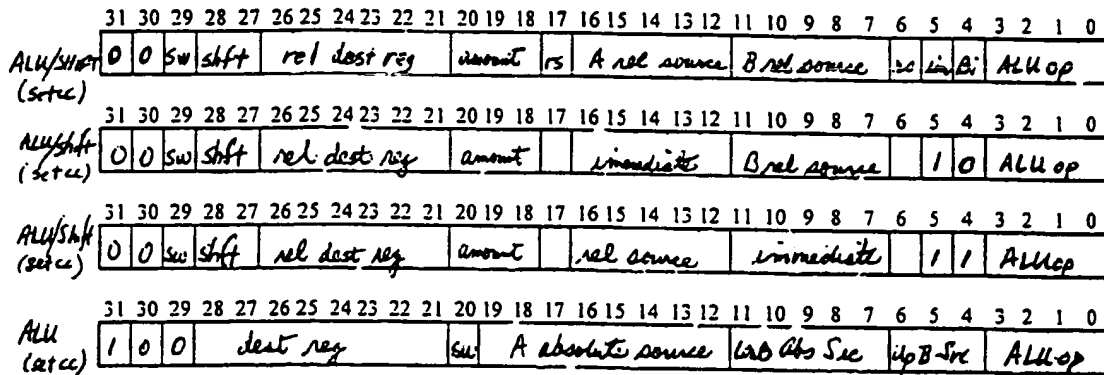 31 30 29 28 27 26 25 24 23 22 21 20 19 18 17 16 15 14 13 12 11 10 9 8 7 6 5 4 3 2 1 0
ALU/Shift 0 0 sw shft rel dest reg amount rs A rel source B rel source Bi ALU op
(setcc)
31 30 29 28 27 26 25 24 23 22 21 20 19 18 17 16 15 14 13 12 11 10 9 8 7 6 5 4 3 2 1 0
ALU/Shft 0 0 sw shft rel dest reg amount immediate B rel source 1 0 ALU op
(setcc)
31 30 29 28 27 26 25 24 23 22 21 20 19 18 17 16 15 14 13 12 11 10 9 8 7 6 5 4 3 2 1 0
ALU/Shft 0 0 sw shft rel dest reg amount rel source immediate 1 1 ALU op
(setcc)
31 30 29 28 27 26 25 24 23 22 21 20 19 18 17 16 15 14 13 12 11 10 9 8 7 6 5 4 3 2 1 0
ALU 1 0 0 dest reg sw A absolute source Abs Src B Src ALU op
(setcc)